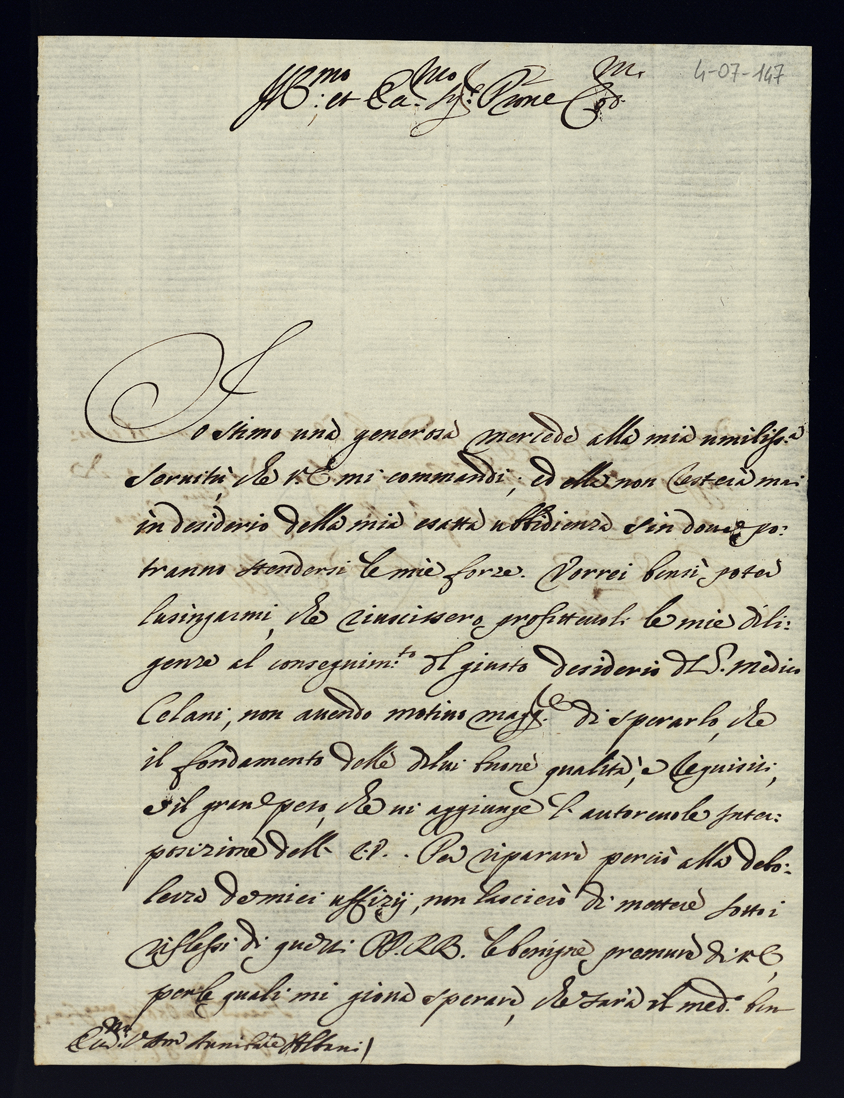 4-07-147
Ill.mo et Ecc.mo Sig.re Prone Col.mo
Io stimo una generosa mercede alla mia umiliss.a
servitù, che V.E. mi commandi; ed ella non resterà mai
in desiderio della mia esatta ubbidienza sin dove po:
tranno stendersi le mie forze. Vorrei bensì poter
lusingarmi, che riuscissero profittevoli le mie dili:
genze al conseguim.to del giusto desiderio del S. Medico
Celani, non avendo motivo magg.re di sperarlo, che
il fondamento delle di lui buone qualità, e requisiti,
e il gran peso, che vi aggiunge l'autorevole Inter:
posizione dell' E.V. . Per riparare perciò alla debo:
lezza de miei uffizij, non lascierò di mettere sotto i
riflessi di questi PP.RR. le benigne premure di V.E.
per le quali mi giova sperare, che sarà il med.o ben
Ecc.mo Annibale Albani